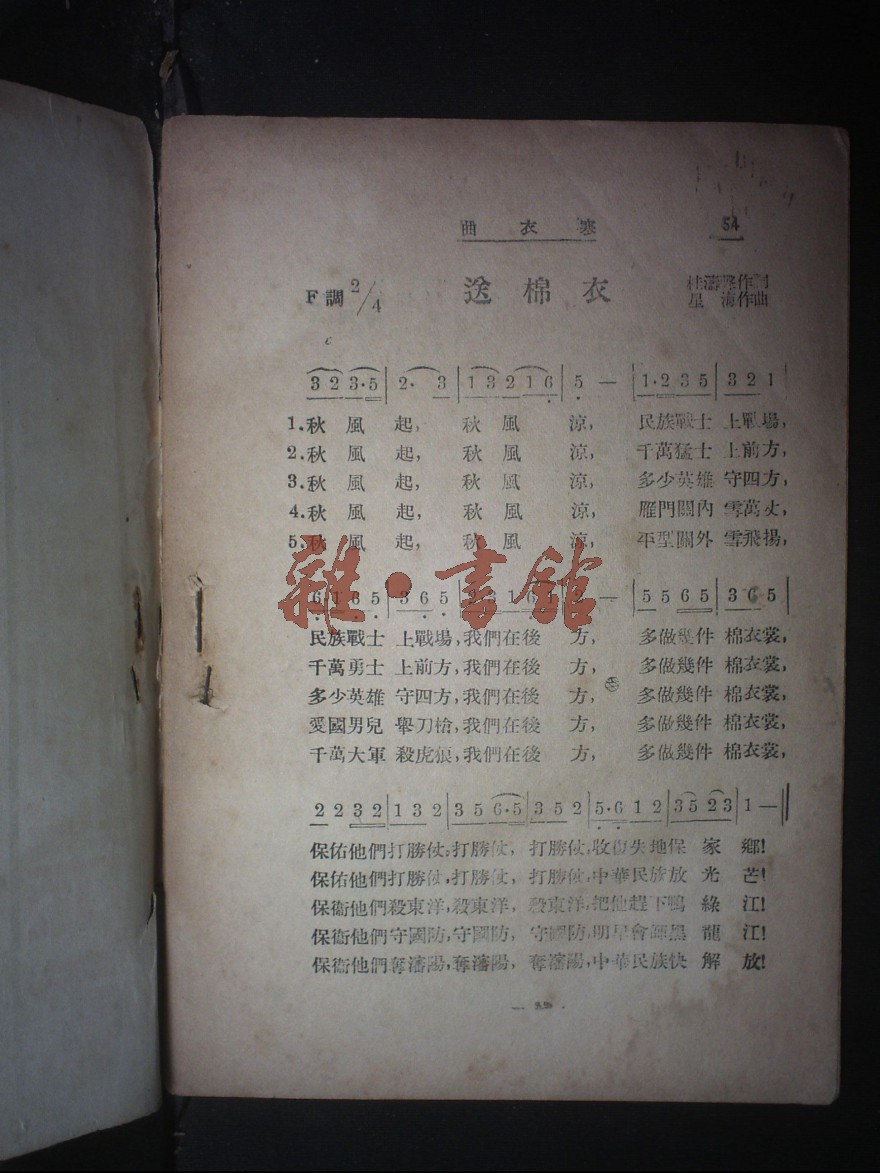 曲 衣 寒 54
F調 2/4 送 棉 衣
星 海作曲
3 2 3·5 | 2· 3 | 1 3 2 1 6 | 5 — | 1·2 3 5 | 3 2 1 |
1.秋 風 起, 秋 風 涼, 民族戰士 上戰場,
2.秋 風 起, 秋 風 涼, 千萬猛士 上前方,
3.秋 風 起, 秋 風 涼, 多少英雄 守四方,
4.秋 風 起, 秋 風 涼, 雁門關內 雪萬丈,
5.秋 風 起, 秋 風 涼, 平型關外 雪飛揚,
雜·書館
6 1 6 5 | 3 6 5 | 2 3 1 6 | 2 — | 5 5 6 5 | 3 6 5 |
民族戰士 上戰場,我們在後 方, 多做幾件 棉衣裳,
千萬勇士 上前方,我們在後 方, 多做幾件 棉衣裳,
多少英雄 守四方,我們在後 方, 多做幾件 棉衣裳,
愛國男兒 舉刀槍,我們在後 方, 多做幾件 棉衣裳,
千萬大軍 殺虎狼,我們在後 方, 多做幾件 棉衣裳,
2 2 3 2 | 1 3 2 | 3 5 6·5 | 3 5 2 | 5·6 1 2 | 3 5 2 3 | 1 — ‖
保佑他們打勝仗,打勝仗, 打勝仗,收復失地保 家 鄉!
保佑他們打勝仗,打勝仗, 打勝仗,中華民族放 光 芒!
保衞他們殺東洋,殺東洋, 殺東洋,把他趕下鴨 綠 江!
保衞他們守國防,守國防, 守國防,明星會師黑 龍 江!
保衞他們奪瀋陽,奪瀋陽, 奪瀋陽,中華民族快 解 放!